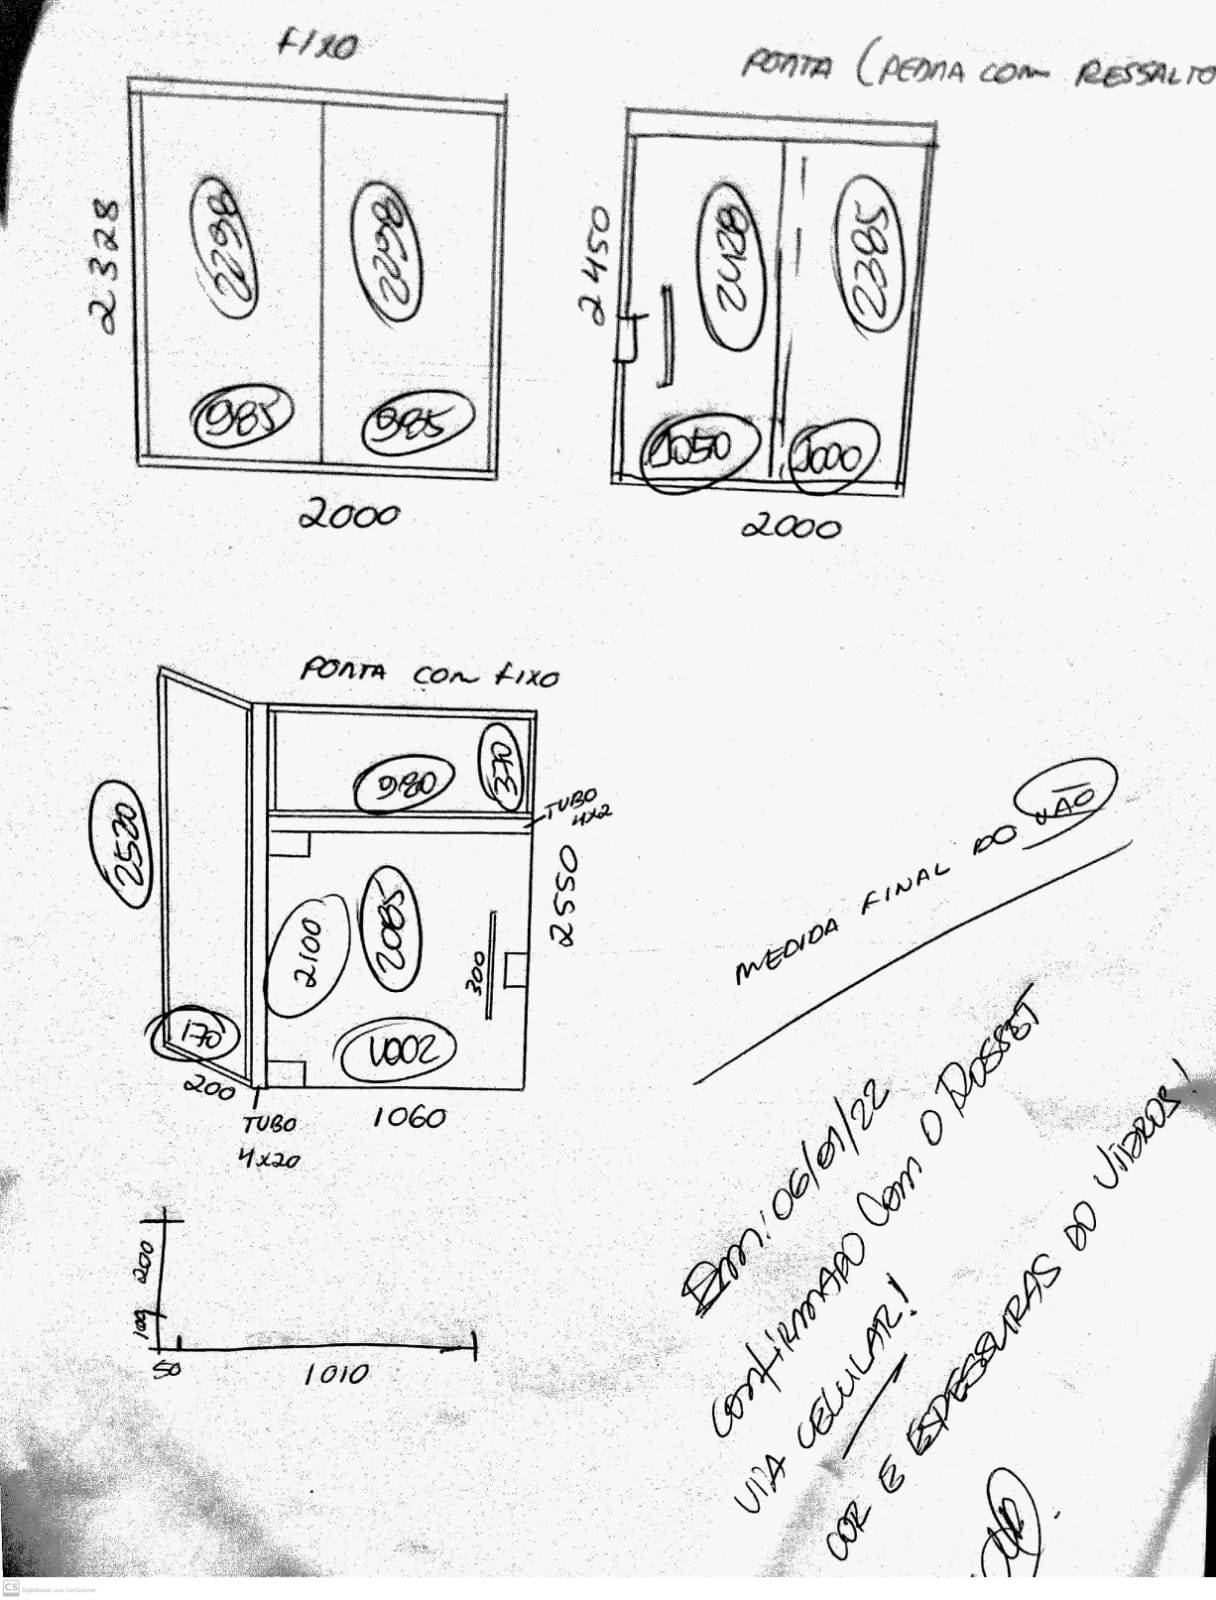 FIXO
PORTA (PEDRA COM RESSALTO
2328
2298
2298
985
985
2000
2450
2428
2385
1050
1000
2000
PORTA COM FIXO
2520
980
370
TUBO
4X2
2550
2100
2085
300
170
1002
200
1060
TUBO
4X20
MEDIDA FINAL DO VÃO
200
100
50
1010
EM: 06/01/22
CONFIRMADO COM O ROSSET
VIA CELULAR!
COR E ESPESSURAS DO VIDROS!
CS Digitalizado com CamScanner